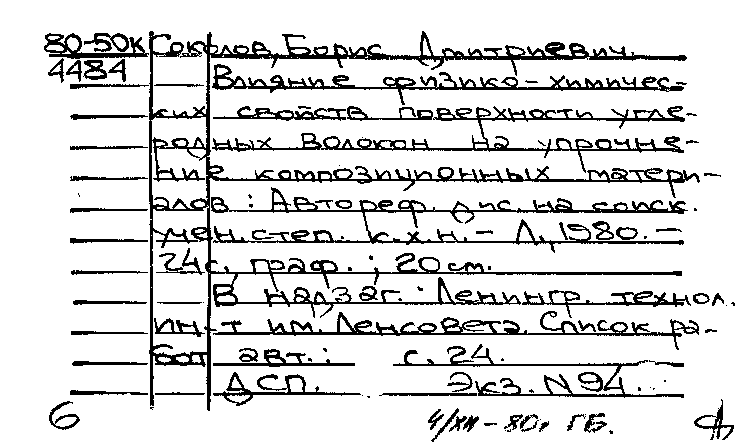 80-50к Соколов, Борис Дмитриевич.
4484 Влияние физико-химичес-
ких свойств поверхности угле-
родных волокон на упрочне-
ние композиционных матери-
алов : Автореф. дис. на соиск.
учен. степ. к.х.н. - Л., 1980. -
24 с., граф. ; 20 см.
В надзаг. : Ленингр. технол.
ин-т им. Ленсовета. Список ра-
бот авт. : с. 24.
ДСП. Экз. N 94.
6 4/XII - 80г ГБ.